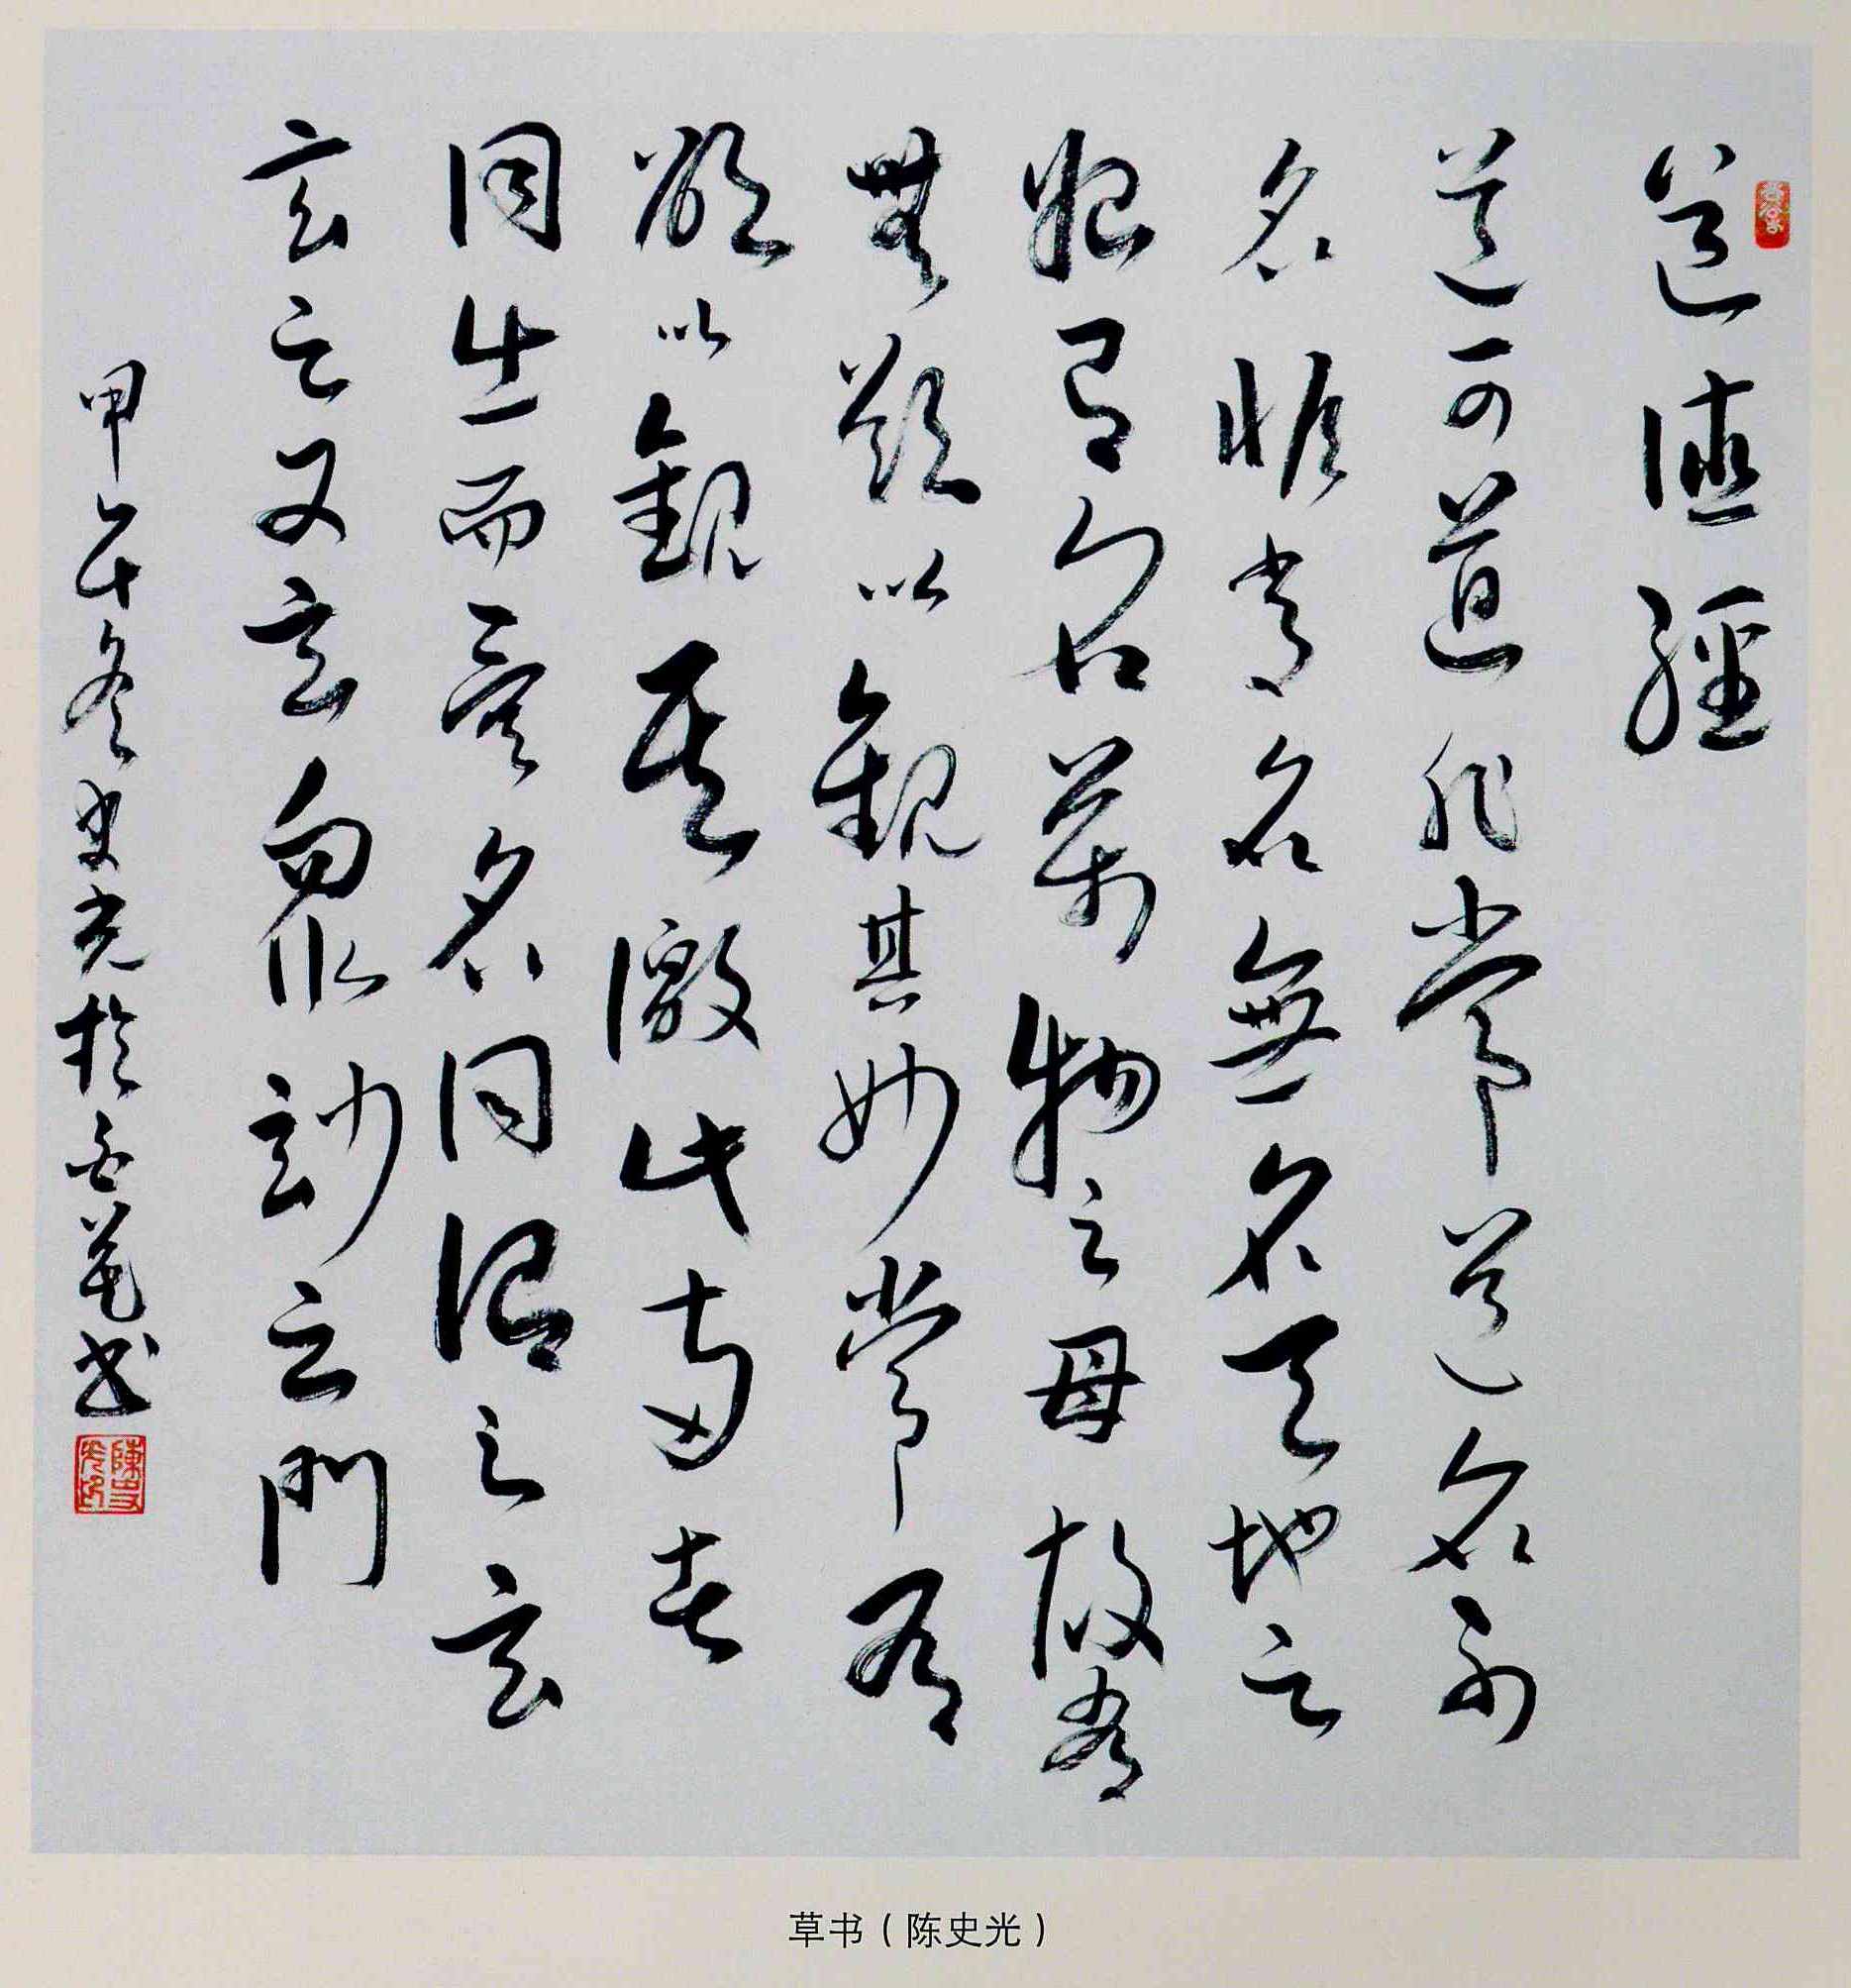 道德經
道可道非常道名可
名非常名無名天地之
始有名萬物之母故常
無欲以觀其妙常有
欲以觀其徼此兩者
同出而異名同謂之玄
玄之又玄眾玅之門
甲午冬史光於書
陳史光印
草书（陈史光）